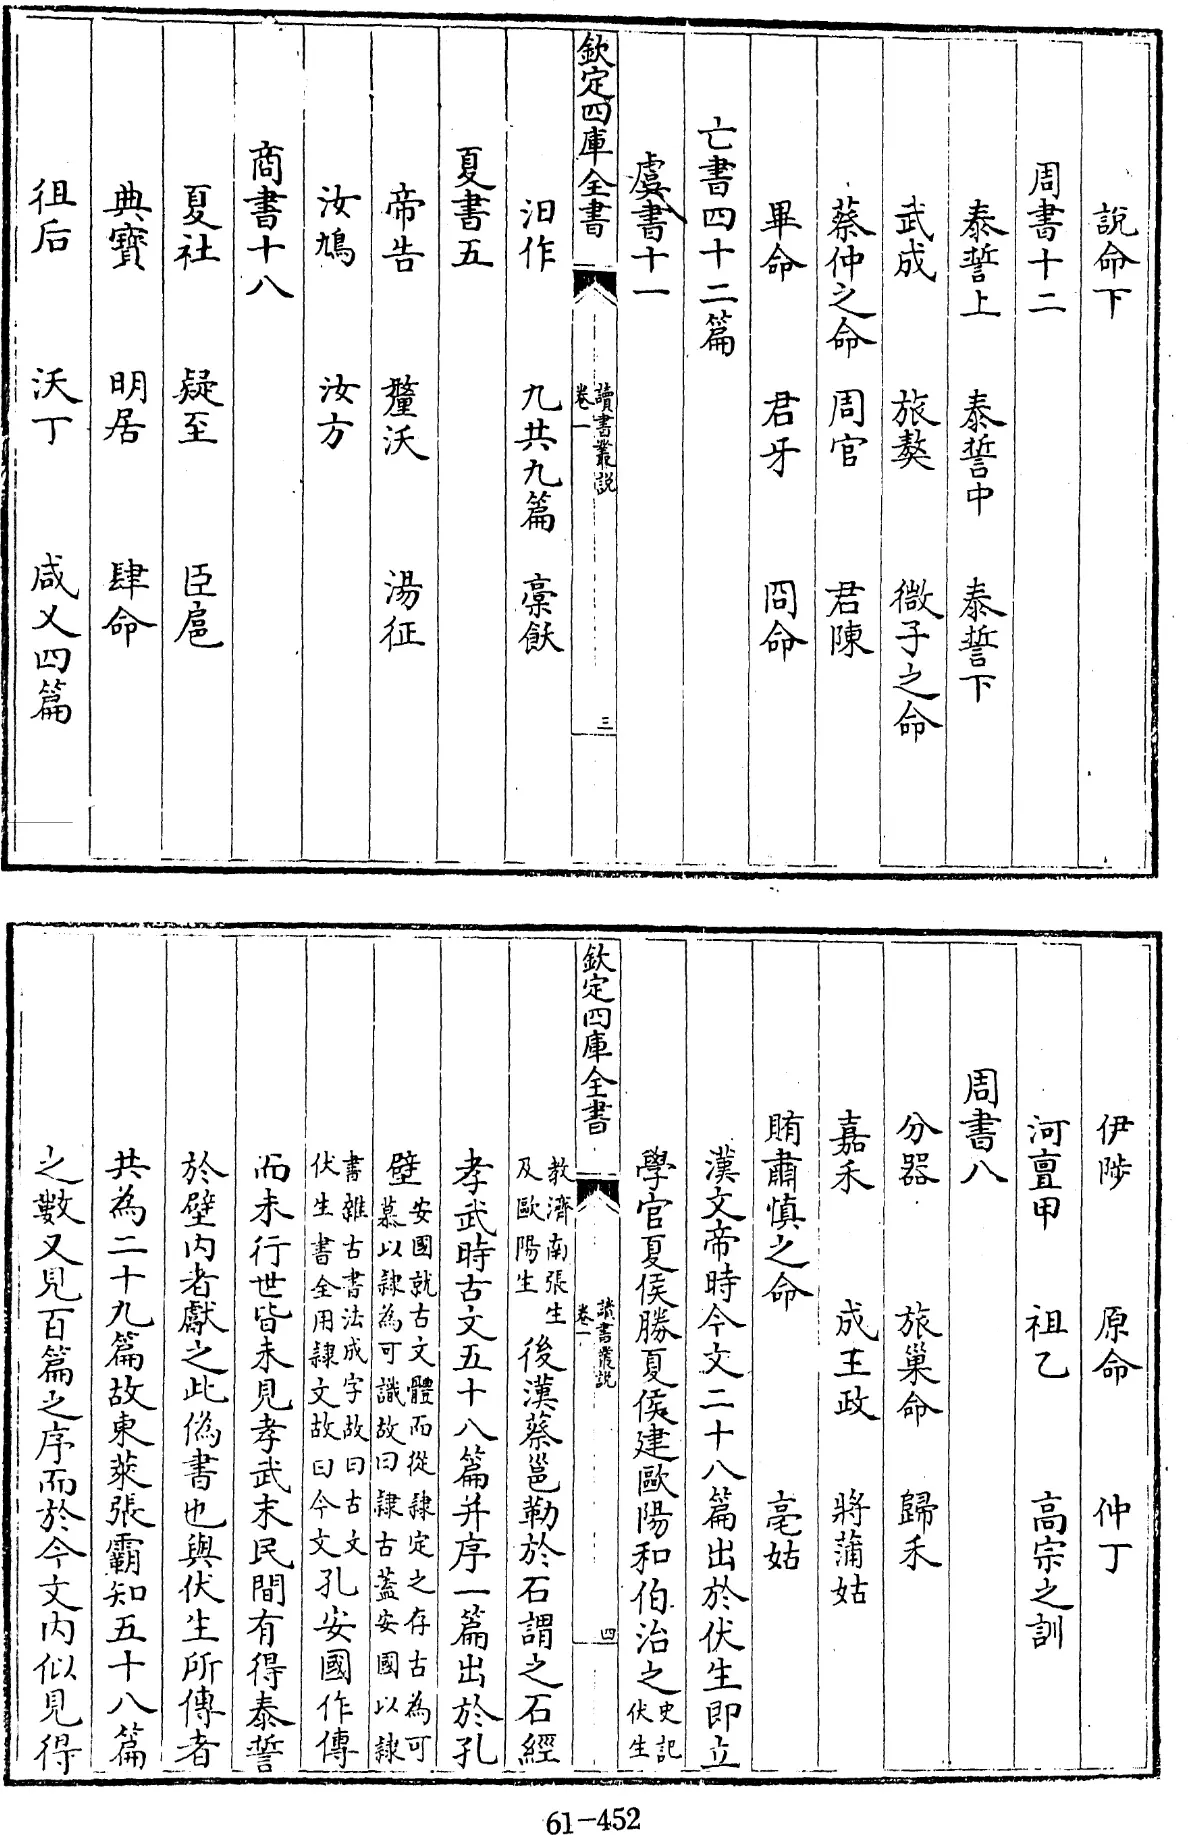 說命下
周書十二
泰誓上 泰誓中 泰誓下
武成 旅獒 微子之命
蔡仲之命 周官 君陳
畢命 君牙 冏命
亡書四十二篇
虞書十一
欽定四庫全書 讀書叢說 卷一 三
汨作 九共九篇 槀飫
夏書五
帝告 釐沃 湯征
汝鳩 汝方
商書十八
夏社 疑至 臣扈
典寶 明居 肆命
徂后 沃丁 咸乂四篇
伊陟 原命 仲丁
河亶甲 祖乙 高宗之訓
周書八
分器 旅巢命 歸禾
嘉禾 成王政 將蒲姑
賄肅慎之命 亳姑
漢文帝時今文二十八篇出於伏生即立
學官夏侯勝夏侯建歐陽和伯治之史記伏生
欽定四庫全書 讀書叢說 卷一 四
教濟南張生及歐陽生後漢蔡邕勒於石謂之石經
孝武時古文五十八篇并序一篇出於孔
壁安國就古文體而從隸定之存古為可慕以隸為可識故曰隸古蓋安國以隸
書雖古書法成字故曰古文伏生書全用隸文故曰今文孔安國作傳
而未行世皆未見孝武末民間有得泰誓
於壁內者獻之此偽書也與伏生所傳者
共為二十九篇故東萊張霸知五十八篇
之數又見百篇之序而於今文內似見得
61-452